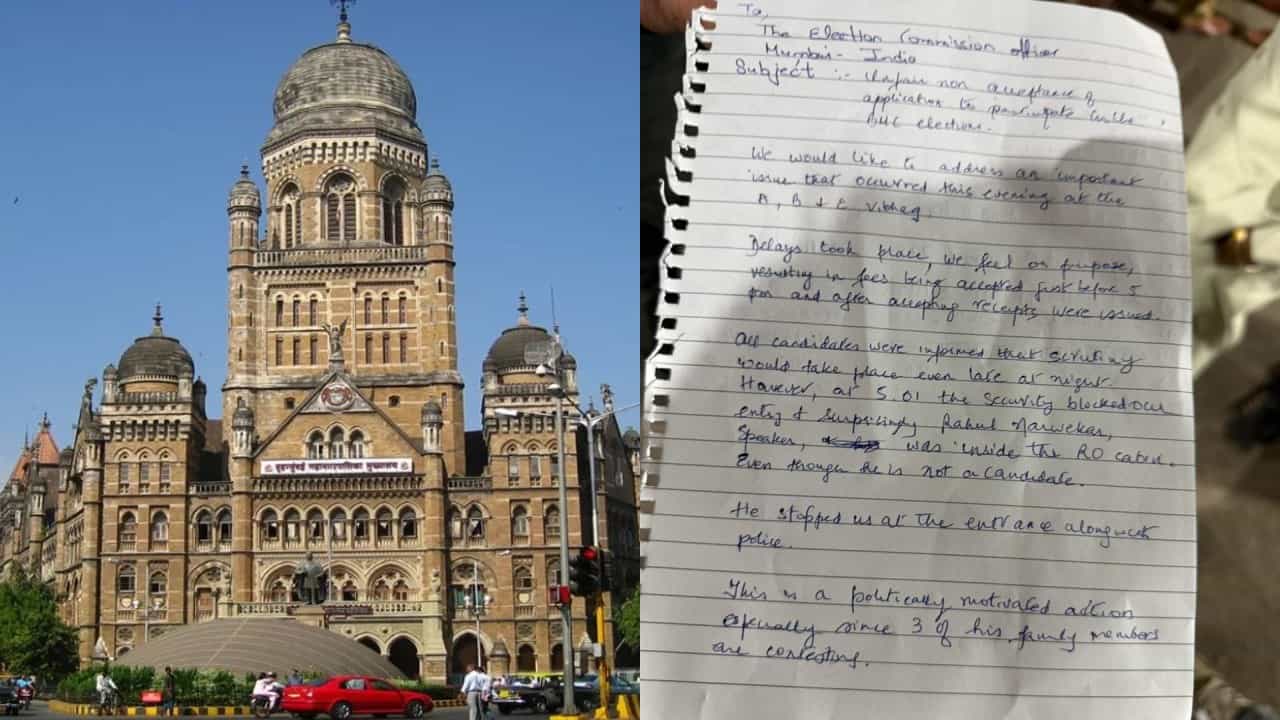 बृहन्मुंबई महानगरपालिका मुख्यालय
To,
The Election Commission officer
Mumbai - India
Subject :- Unfair non aceptance of
application to participate in the
BMC elections.
We would like to address an important
issue that occurred this evening at the
A, B & E Vibhag.
Delays took place, we feel on purpose,
resulting in fees being accepted just before 5
pm and after accepting receipts were issued.
All candidates were informed that scrutiny
would take place even late at night.
However, at 5.01 the security blocked our
entry & surprisingly Rahul Narwekar,
Speaker, was inside the RO cabin.
Even though he is not a candidate.
He stopped us at the entrance alongwith
police.
This is a politically motivated action
especially since 3 of his family members
are contesting.